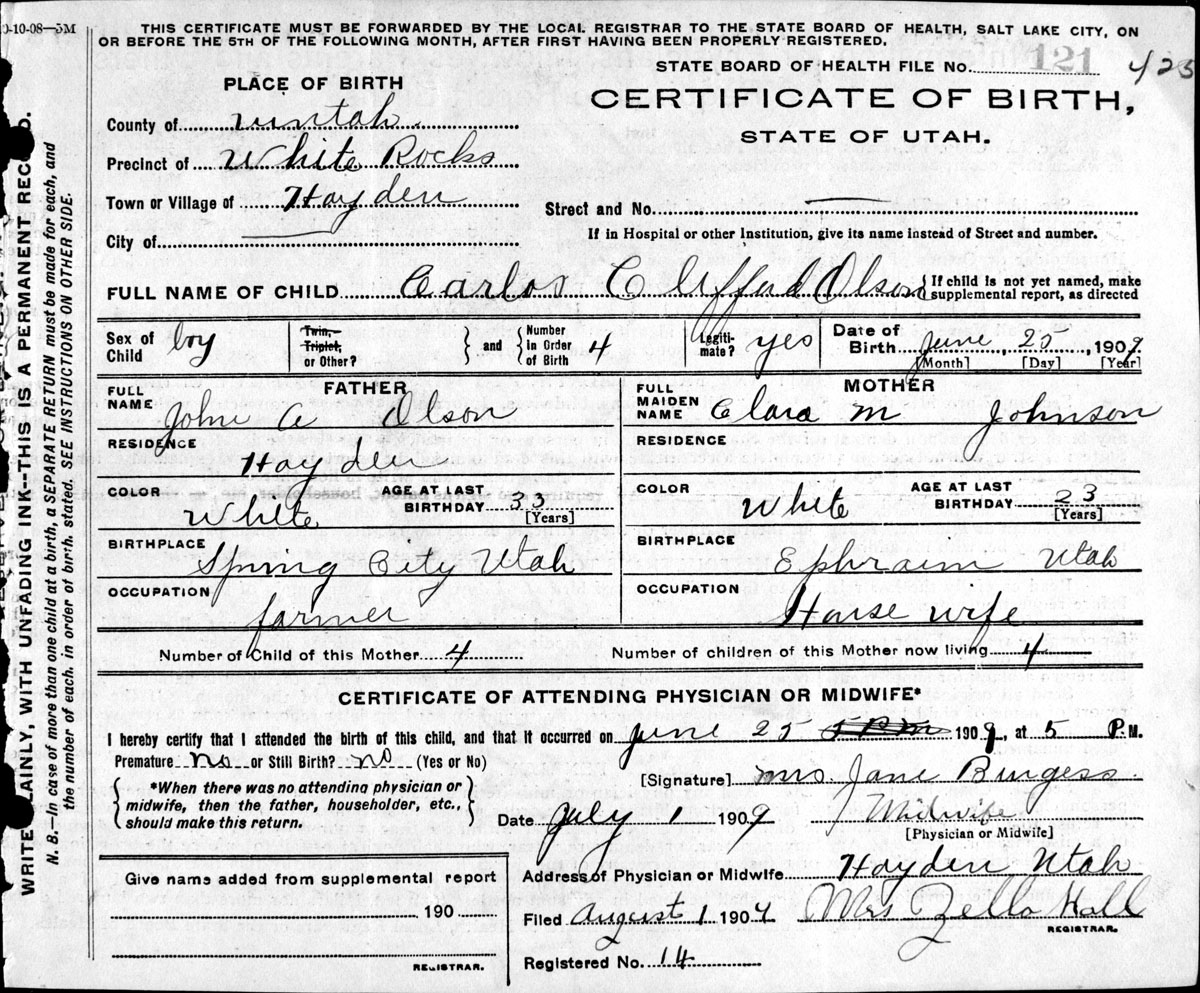 0-10-08—5M
THIS CERTIFICATE MUST BE FORWARDED BY THE LOCAL REGISTRAR TO THE STATE BOARD OF HEALTH, SALT LAKE CITY, ON
OR BEFORE THE 5TH OF THE FOLLOWING MONTH, AFTER FIRST HAVING BEEN PROPERLY REGISTERED.
STATE BOARD OF HEALTH FILE No. 121 423
PLACE OF BIRTH
CERTIFICATE OF BIRTH,
STATE OF UTAH.
County of uintah.
Precinct of White Rocks
Town or Village of Hayden
Street and No.
City of
If in Hospital or other Institution, give its name instead of Street and number.
FULL NAME OF CHILD Carlos Clifford Olson {If child is not yet named, make
supplemental report, as directed
Sex of Child boy
Twin, Triplet, or Other? } and { Number in Order of Birth 4
Legitimate? yes
Date of Birth June, 25, 1909
[Month] [Day] [Year]
FATHER
FULL NAME John A Olson
RESIDENCE
Hayden
COLOR White AGE AT LAST BIRTHDAY 33
[Years]
BIRTHPLACE
Spring City Utah
OCCUPATION
farmer
MOTHER
FULL MAIDEN NAME Clara M Johnson
RESIDENCE
COLOR White AGE AT LAST BIRTHDAY 23
[Years]
BIRTHPLACE
Ephraim Utah
OCCUPATION
House wife
Number of Child of this Mother 4 Number of children of this Mother now living 4
CERTIFICATE OF ATTENDING PHYSICIAN OR MIDWIFE*
I hereby certify that I attended the birth of this child, and that it occurred on June 25 1909, at 5 P.M.
Premature no or Still Birth? no (Yes or No)
[Signature] Mrs Jane Burgess.
{*When there was no attending physician or
midwife, then the father, householder, etc.,
should make this return.}
Date July 1 1909 Midwife
[Physician or Midwife]
Address of Physician or Midwife Hayden Utah
Filed August 1 1909 Mrs Zella Hall
REGISTRAR.
Registered No. 14
Give name added from supplemental report
190
REGISTRAR.
WRITE PLAINLY, WITH UNFADING INK—THIS IS A PERMANENT RECORD.
N. B.—In case of more than one child at a birth, a SEPARATE RETURN must be made for each, and
the number of each, in order of birth, stated. SEE INSTRUCTIONS ON OTHER SIDE.